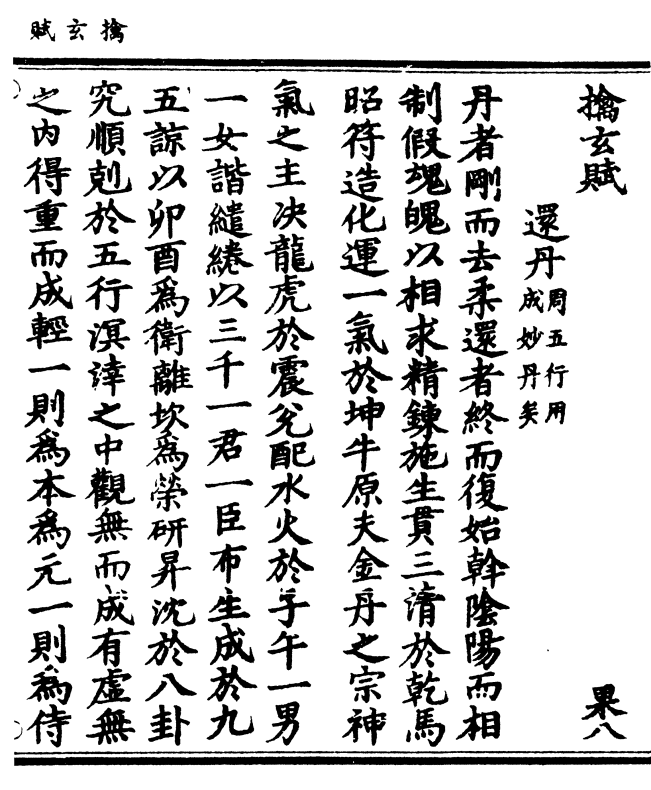 擒玄賦
擒玄賦
果八
還丹周五行用成妙丹矣
丹者剛而去柔還者終而復始斡陰陽而相
制假魂魄以相求精鍊施生貫三清於乾馬
昭符造化運一氣於坤牛原夫金丹之宗神
氣之主決龍虎於震兌配水火於子午一男
一女諧繾綣以三千一君一臣布生成於九
五諒以卯酉為衛離坎為榮研昇沈於八卦
究順剋於五行溟涬之中觀無而成有虛無
之內得重而成輕一則為本為元一則為侍